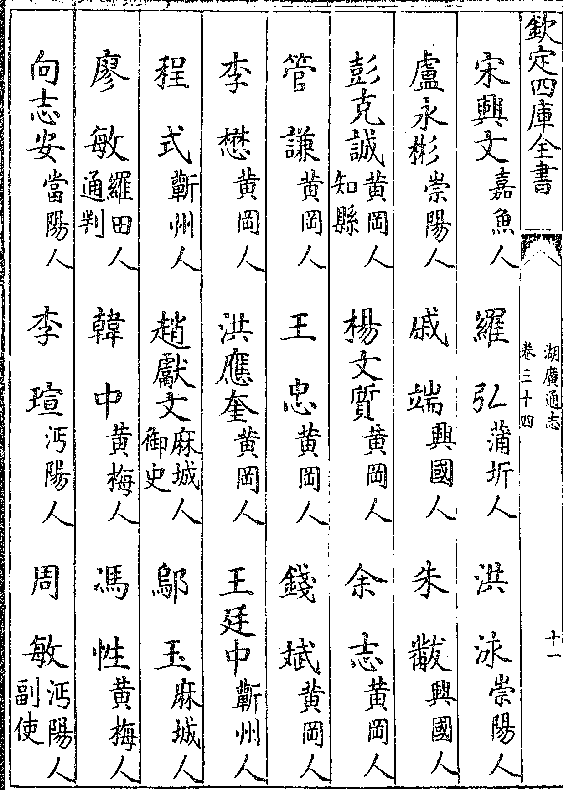 欽定四庫全書
湖廣通志
卷三十四
十一
宋興文嘉魚人 羅弘蒲圻人 洪泳崇陽人
盧永彬崇陽人 戚端興國人 朱黻興國人
彭克誠黄岡人知縣 楊文質黄岡人 余志黄岡人
管謙黄岡人 王忠黄岡人 錢斌黄岡人
李懋黄岡人 洪應奎黄岡人 王廷中蘄州人
程式蘄州人 趙獻文麻城人御史 鄔玉麻城人
廖敏羅田人通判 韓中黄梅人 馮性黄梅人
向志安當陽人 李瑄沔陽人 周敏沔陽人副使